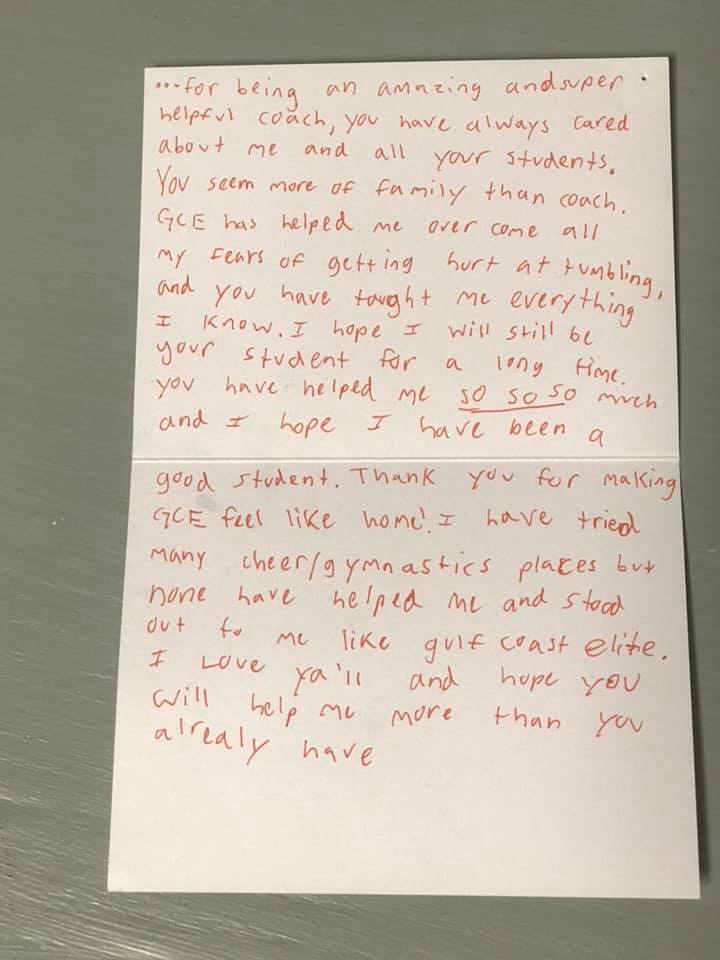 ...for being an amazing andsuper
helpful coach, you have always cared
about me and all your students.
You seem more of family than coach.
GCE has helped me over come all
my fears of getting hurt at tumbling,
and you have taught me everything
I know. I hope I will still be
your student for a long time.
you have helped me so so so much
and I hope I have been a
good student. Thank you for making
GCE feel like home! I have tried
many cheer/gymnastics places but
none have helped me and stood
out to me like gulf coast elite.
I Love ya'll and hope you
will help me more than you
alrealy have